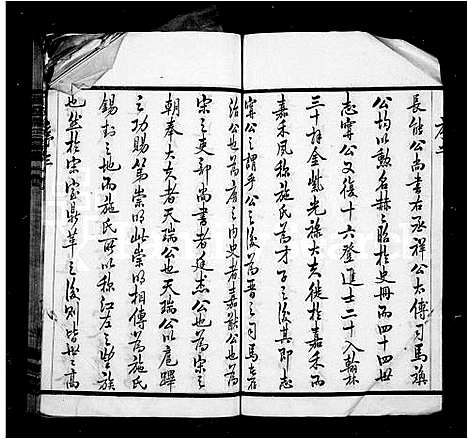 長能公尚書右丞祥公太傅司馬旗
公均以勳名赫之昭於史冊而四十四世
志寧公又復十六登進士二十入翰林
三十拜金紫光祿大夫徙於嘉禾而
嘉禾夙稱施氏為才子之後其即志
寧公之謂乎公之後為晉之司馬者
治公也為唐之內史者嘉猷公也為
宋之吏部尚書者廷杰公也為宋之
朝奉大夫者天瑞公也天瑞公以扈蹕
之功賜第崇明此崇明相傳為施氏
錫封之地而施氏所以稱江左之望族
也然於宋寶鼎革之後則皆世之高